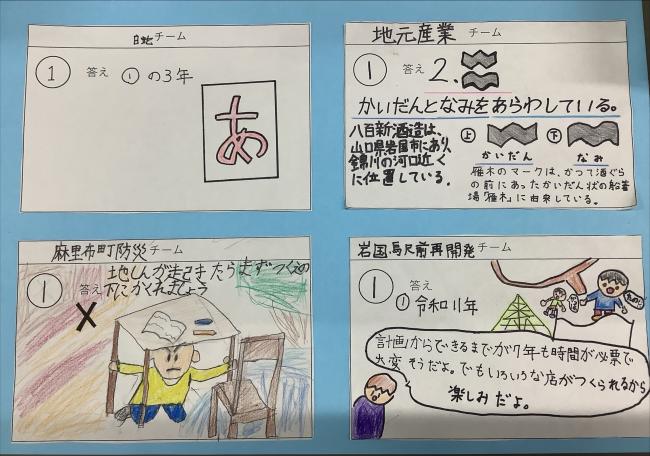 チーム
1
答え ① の3年
あ
地元産業 チーム
1
答え 2.
かいだんとなみをあらわしている。
八百新酒造は、
山口県岩国市にあり、
錦川の河口近く
に位置している。
上
かいだん
下
なみ
雁木のマークは、かつて酒ぐら
の前にあったかいだん状の船着
場「雁木」に由来している。
麻里布町防災チーム
1
答え
X
地しんが起きたらまずつくえの
下にかくれましょう
岩国駅前再開発チーム
1
答え
① 令和11年
計画からできるまでが7年も時間が必要で
大変そうだよ。でもいろいろな店がつくられるから
楽しみだよ。